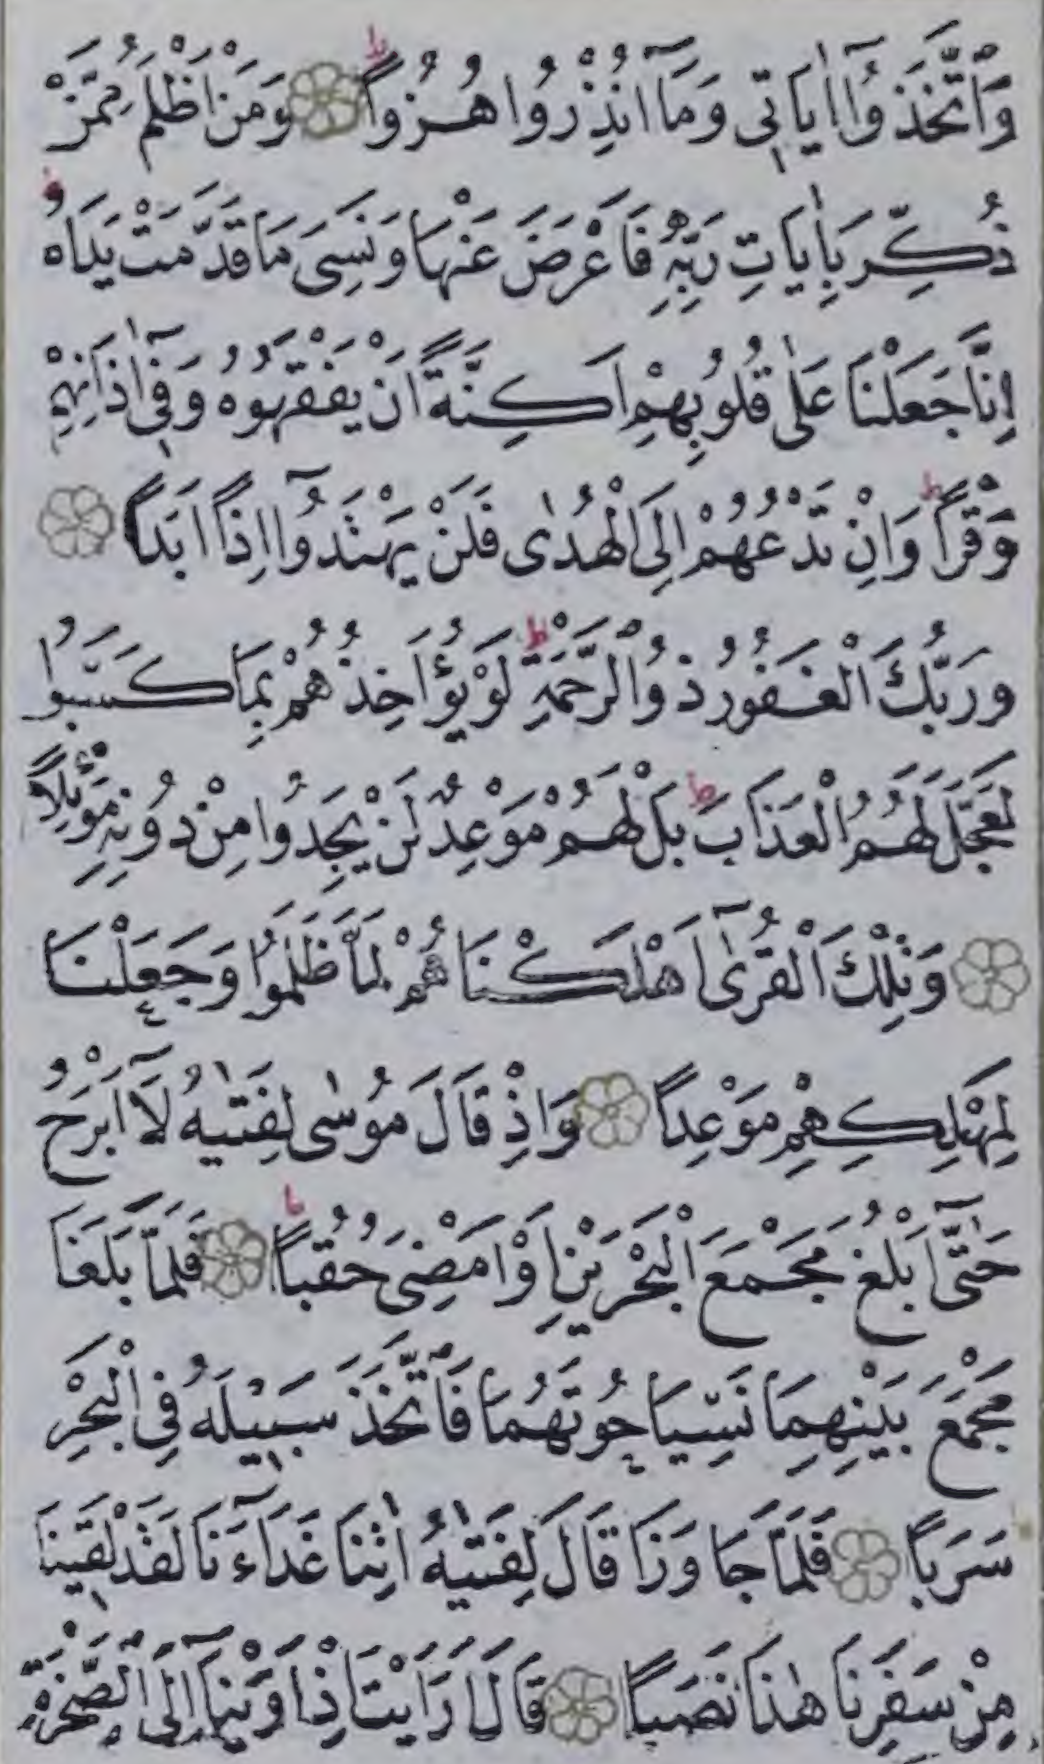 وَاتَّخَذُوٓا اٰيَاتٖى وَمَآ اُنْذِرُوا هُزُوًاۜ وَمَنْ اَظْلَمُ مِمَّنْ
ذُكِّرَ بِاٰيَاتِ رَبِّهٖ فَاَعْرَضَ عَنْهَا وَنَسِىَ مَا قَدَّمَتْ يَدَاهُۜ
اِنَّا جَعَلْنَا عَلٰى قُلُوبِهِمْ اَكِنَّةً اَنْ يَفْقَهُوهُ وَفٖٓى اٰذَانِهِمْ
وَقْرًاۜ وَاِنْ تَدْعُهُمْ اِلَى الْهُدٰى فَلَنْ يَهْتَدُوٓا اِذًا اَبَدًا
وَرَبُّكَ الْغَفُورُ ذُو الرَّحْمَةِۜ لَوْ يُؤَاخِذُهُمْ بِمَا كَسَبُوا
لَعَجَّلَ لَهُمُ الْعَذَابَۜ بَلْ لَهُمْ مَوْعِدٌ لَنْ يَجِدُوا مِنْ دُونِهٖ مَوْئِلًا
وَتِلْكَ الْقُرٰٓى اَهْلَكْنَاهُمْ لَمَّا ظَلَمُوا وَجَعَلْنَا
لِمَهْلِكِهِمْ مَوْعِدًا وَاِذْ قَالَ مُوسٰى لِفَتٰيهُ لَآ اَبْرَحُ
حَتّٰٓى اَبْلُغَ مَجْمَعَ الْبَحْرَيْنِ اَوْ اَمْضِىَ حُقُبًاۜ فَلَمَّا بَلَغَا
مَجْمَعَ بَيْنِهِمَا نَسِيَا حُوتَهُمَا فَاتَّخَذَ سَبٖيلَهُ فِى الْبَحْرِ
سَرَبًا فَلَمَّا جَاوَزَا قَالَ لِفَتٰيهُ اٰتِنَا غَدَآءَنَا لَقَدْ لَقٖينَا
مِنْ سَفَرِنَا هٰذَا نَصَبًا قَالَ اَرَاَيْتَ اِذْ اَوَيْنَآ اِلَى الصَّخْرَةِ